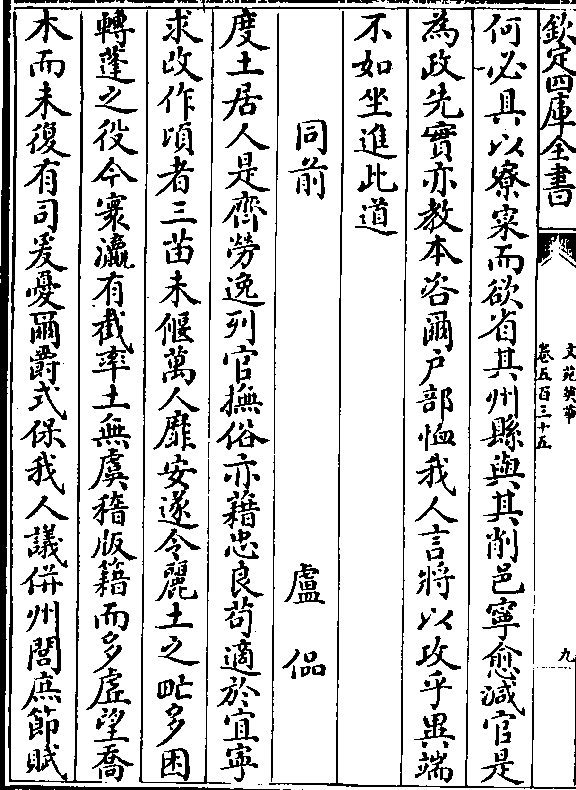 欽定四庫全書
文苑英華
卷五百三十五
九
何必具以寮寀而欲省其州縣與其削邑寧愈減官是
為政先實亦教本咨爾户部恤我人言將以攻乎異端
不如坐進此道
同前 盧 偘
度土居人是齊勞逸列官撫俗亦藉忠良苟適於宜寧
求改作頃者三苗未偃萬人靡安遂令麗土之甿多困
轉蓬之役今寰瀛有截率土無虞稽版籍而多虚望喬
木而未復有司爰憂爾爵式保我人議併州閭庶節賦